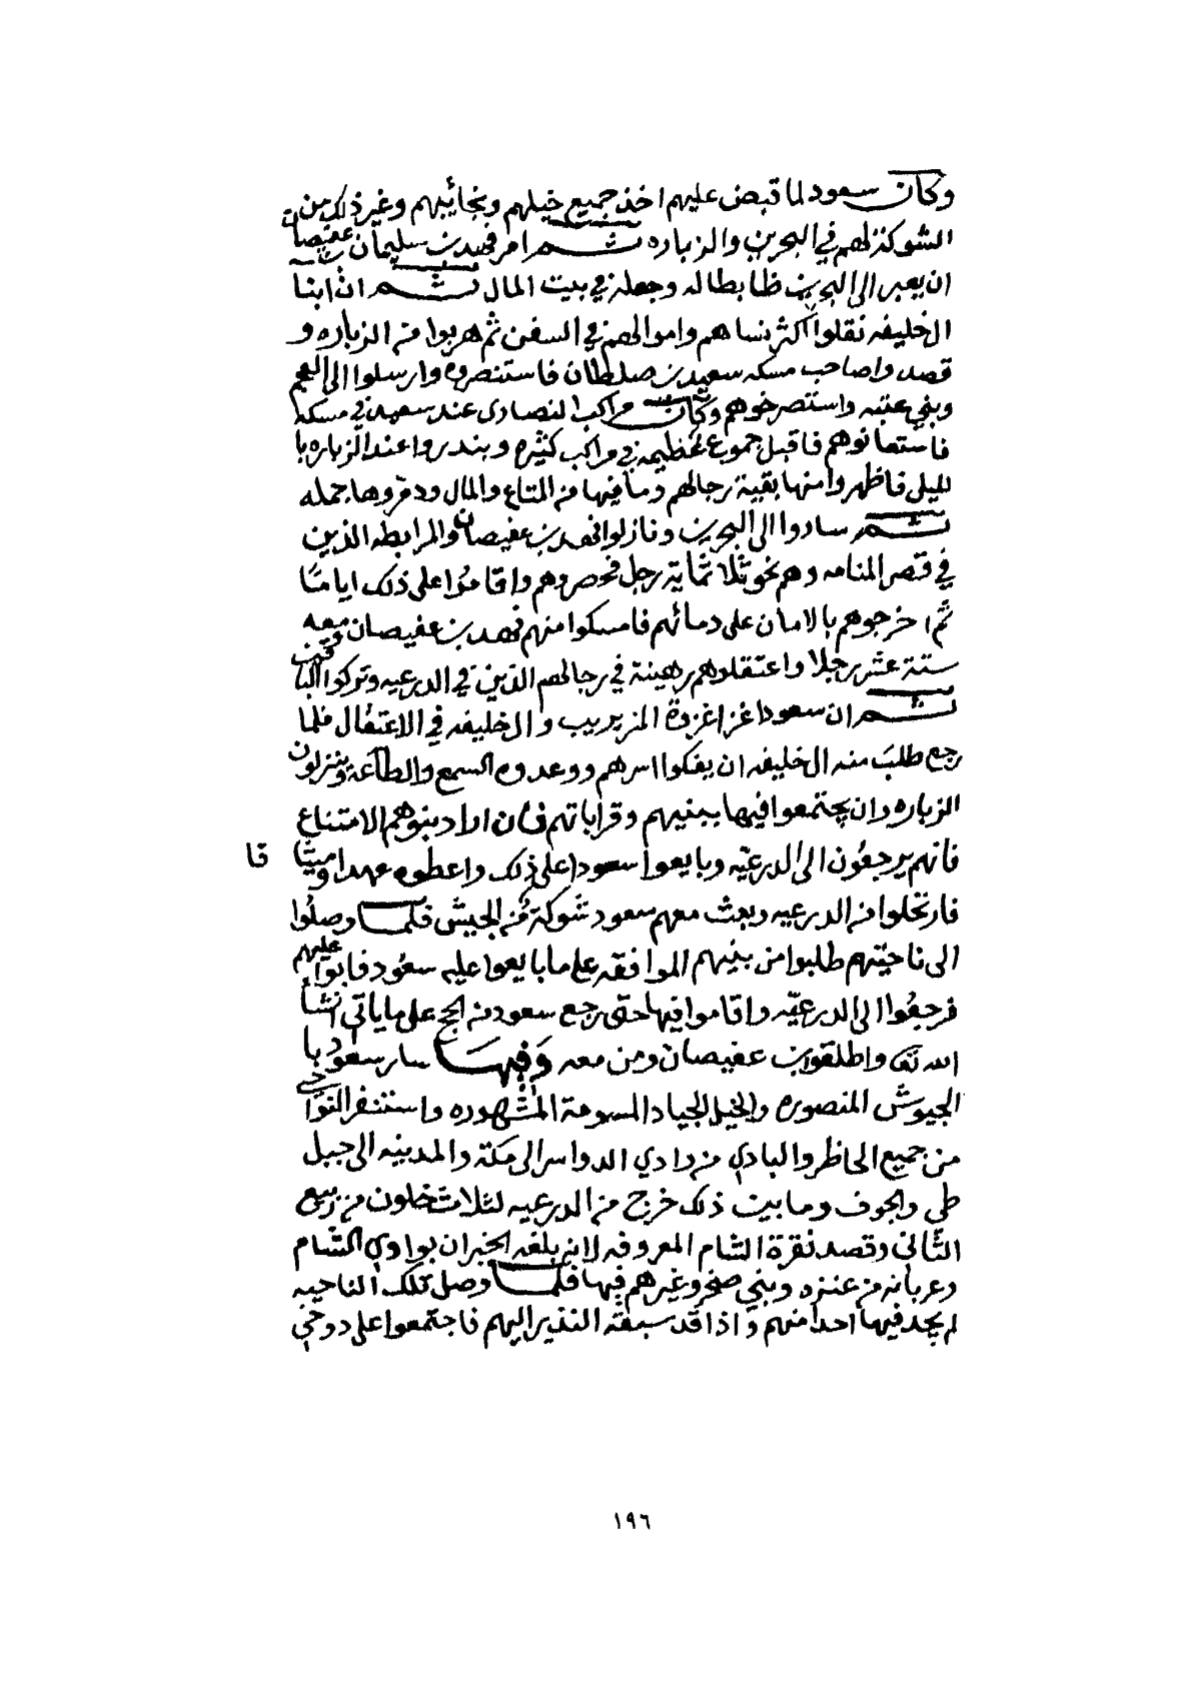 وكان سعود لما قبض عليهم اخذ جميع خيلهم ونجائبهم وغير ذلك من
الشوكة لهم في البحرين والزباره ثم امر فهد بن سليمان بن عفيصان
ان يعبر الى البحرين ظابطا له وجعله في بيت المال ثم ان ابنا
ال خليفه نقلوا اكثر نساهم واموالهم في السفن ثم هربوا من الزباره و
قصدوا صاحب مسكه سعيد بن صلطان فاستنصروه وارسلوا الى العجم
وبني عتبه واستصرخوهم وكان مراكب النصارى عند سعيد في مسكه
فاستعانوهم فاقبل جموع عظيمه في مراكب كثيره وبندروا عند الزباره با
لليل فاظهروا منها بقية رجالهم وما فيها من المتاع والمال ودمروها جمله
ثم ساروا الى البحرين ونازلوا فهد بن عفيصان والمرابطه الذين
في قصر المنامه وهم نحو ثلاثماية رجل فحصروهم واقاموا على ذلك اياما
ثم اخرجوهم بالامان على دمائهم فامسكوا منهم فهد بن عفيصان ومعه
ستة عشر رجلا واعتقلوهم رهينة في رجالهم الذين في الدرعيه وتركوا الباقين
ثم ان سعودا غزا غزوة المزيريب وال خليفه في الاعتقال فلما
رجع طلب منه ال خليفه ان يفكوا اسرهم ووعدوه السمع والطاعه وينزلون
الزباره وان يجتمعوا فيها ببنيهم وقراباتهم فان ارادبنوهم الامتناع
فانهم يرجعون الى الدرعيه وبايعوا سعودا على ذلك واعطوه عهدا وميثا قا
فارتحلوا من الدرعيه وبعث معهم سعود شوكة من الجيش فلما وصلوا
الى ناحيتهم طلبوا من بنيهم الموافقه على ما بايعوا عليه سعود فابوا عليهم
فرجعوا الى الدرعيه واقاموا فيها حتى رجع سعود من الحج على ما ياتي انشا
الله تعالى واطلقوا بن عفيصان ومن معه وفيها سار سعود با
الجيوش المنصوره والخيل الجياد المسومة المشهوره واستنفر النواحي
من جميع الحاظر والبادي من وادي الدواسر الى مكة والمدينه الى جبل
طي والجوف وما بين ذلك خرج من الدرعيه لثلاث خلون من ربيع
الثاني وقصد نقرة الشام المعروفه لانه بلغه الخبر ان بوادي الشام
وعربانه من عنزه وبني صخر وغيرهم فيها فلما وصل تلك الناحيه
لم يجد فيها احدا منهم واذا قد سبقه النذير اليهم فاجتمعوا على دوخي
١٩٦